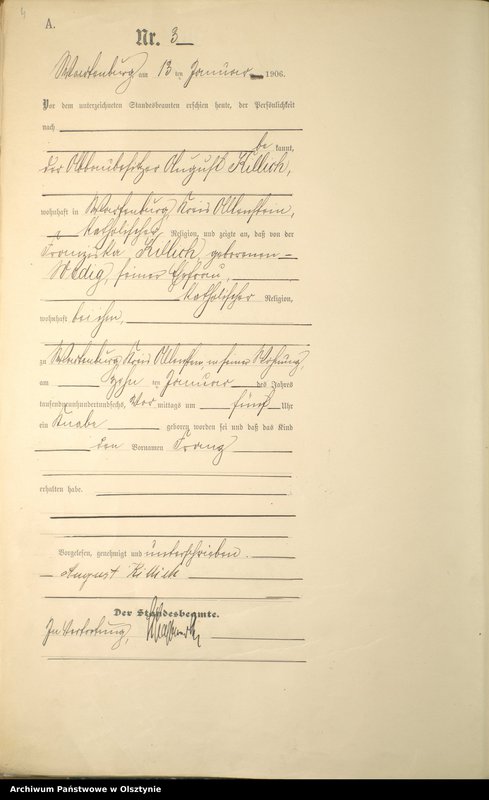 4
A.
Nr. 3
Wartenburg am 13 ten Januar 1906.
Vor dem unterzeichneten Standesbeamten erschien heute, der Persönlichkeit
nach
be kannt,
der August Killich,
wohnhaft in Wartenburg, Kreis Allenstein,
katholischer Religion, und zeigte an, daß von der
Franziska Killich, geborenen
seiner Ehefrau,
katholischer Religion,
wohnhaft bei ihm,
zu Wartenburg Kreis Allenstein, in seiner Wohnung,
am zehn ten Januar des Jahres
tausendneunhundertundsechs, Vor mittags um fünf Uhr
ein Knabe geboren worden sei und daß das Kind
den Vornamen Franz
erhalten habe.
Vorgelesen, genehmigt und unterschrieben.
August Killich
Der Standesbeamte.
In Vertretung,
Archiwum Państwowe w Olsztynie